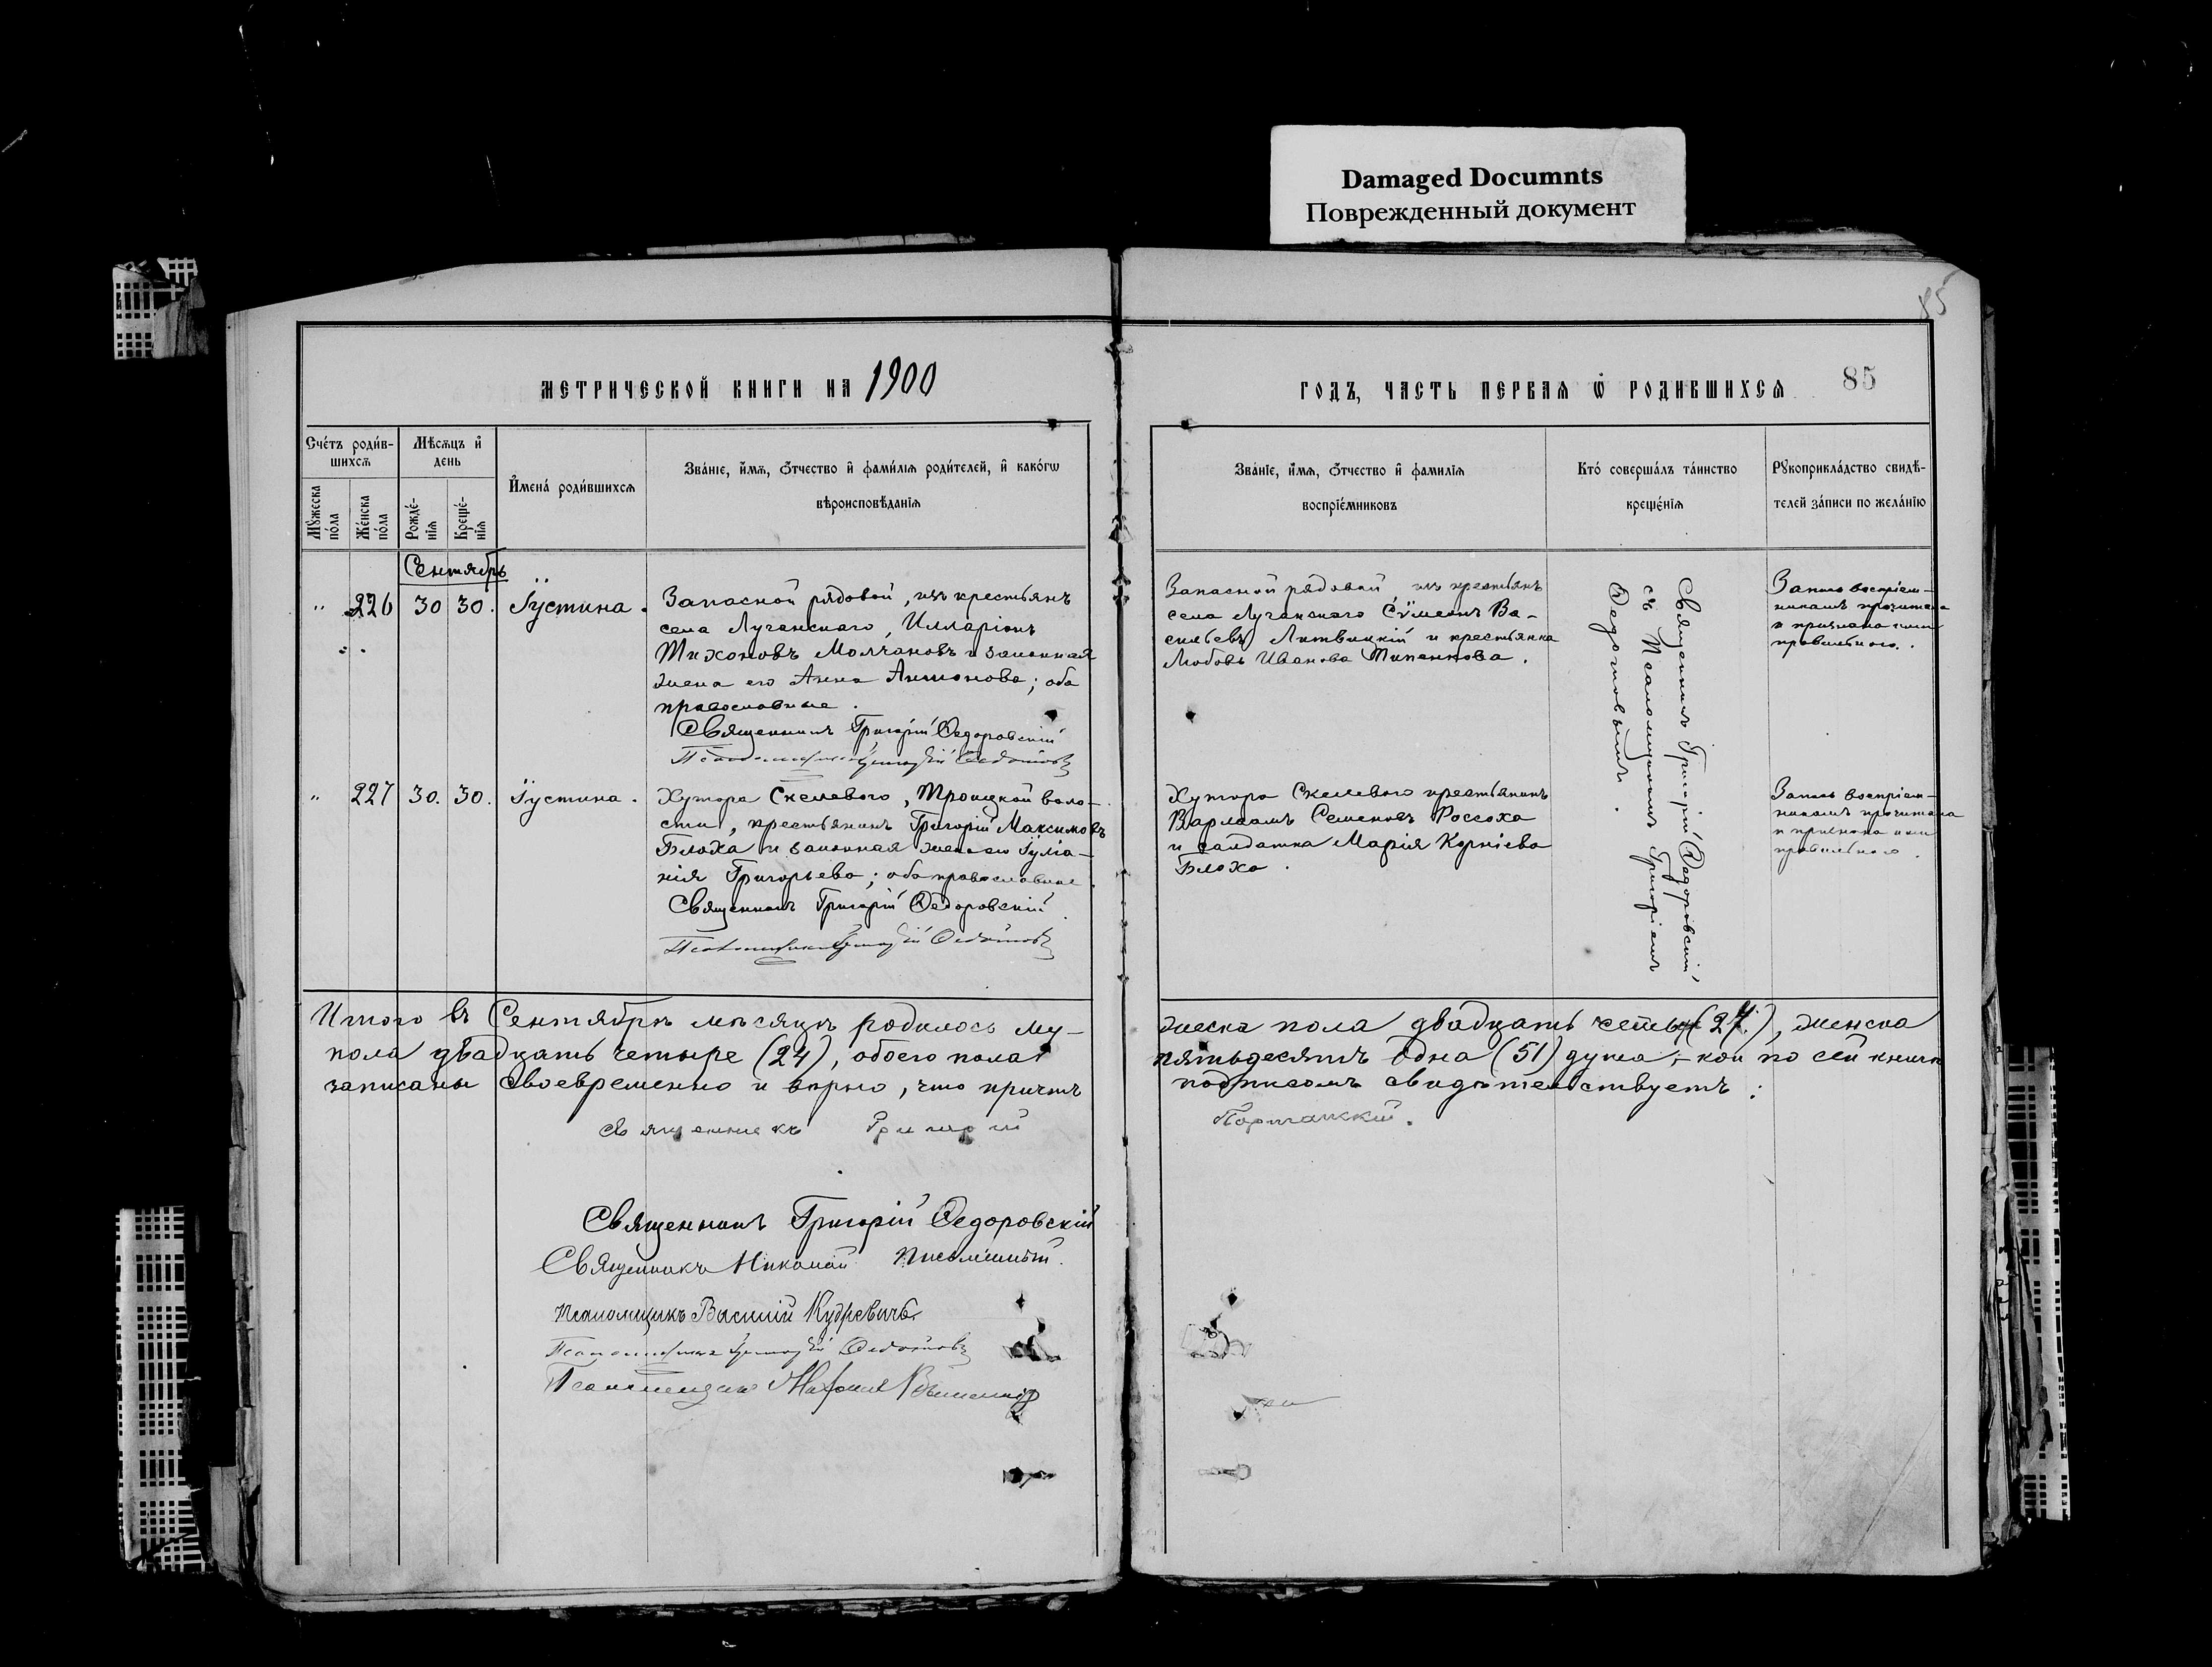 Damaged Documnts
Поврежденный документ
85
МЕТРИЧЕСКОЙ КНИГИ НА 1900
ГОДЪ, ЧАСТЬ ПЕРВАЯ Ѡ РОДИВШИХСѦ
85
Счéтъ роди́в-
шихсѧ
Мѣ́сѧцъ и҆
день
Мꙋ́жеска
по́ла
Же́нска
по́ла
Рожде́-
нїѧ
Креще́-
нїѧ
И҆мена̀ роди́вшихсѧ
Зва́нїе, и҆́мѧ, ѻ҆́тчество и҆ фами́лїѧ роди́телей, и҆ како́гѡ
вѣроисповѣ́данїѧ
Зва́нїе, и҆́мѧ, ѻ҆́тчество и҆ фами́лїѧ
воспрїе́мниковъ
Кто̀ соверша́лъ та́инство
креще́нїѧ
Рꙋкоприкла́дство свидѣ́-
телей за́писи по жела́нїю
Сентябрь
" 226 30 30. Іустина.
Запасной рядовой, изъ крестьянъ
села Луганскаго, Илларіонъ
Тихоновъ Молчановъ и законная
жена его Анна Антонова; оба
православные.
Священникъ Григорій Ѳедоровскій
Псаломщикъ Григорій Ѳедотовъ
Запасной рядовой, изъ крестьянъ
села Луганскаго Сѵмеонъ Ва-
сильевъ Литвицкій и крестьянка
Любовь Иванова Типенкова.
Священникъ Григорій Ѳедоровскій
съ Псаломщикомъ Григоріемъ
Ѳедотовымъ.
Запись воспріем-
никамъ прочитана
и признана ими
правильною.
" 227 30. 30. Іустина.
Хутора Скелеваго, Троицкой воло-
сти, крестьянинъ Григорій Максимовъ
Блоха и законная жена его Іуліа-
нія Григорьева; оба православные.
Священникъ Григорій Ѳедоровскій
Псаломщикъ Григорій Ѳедотовъ
Хутора Скелеваго крестьянинъ
Варлаамъ Семеновъ Россоха
и солдатка Марія Корніева
Блоха.
Запись воспріем-
никамъ прочитана
и признана ими
правильною.
Итого въ Сентябрѣ мѣсяцѣ родилось му-
жеска пола двадцать четыр (27), женска
пола двадцать четыре (24), обоего пола
пятьдесятъ одна (51) душа; кои по сей книгѣ
записаны своевременно и вѣрно, что причтъ
подписомъ свидѣтельствуетъ:
священникъ Григорій
Священникъ Григорій Ѳедоровскій
Священникъ Николай
псаломщикъ Василій Кудревичъ
Псаломщикъ Григорій Ѳедотовъ
Псаломщикъ